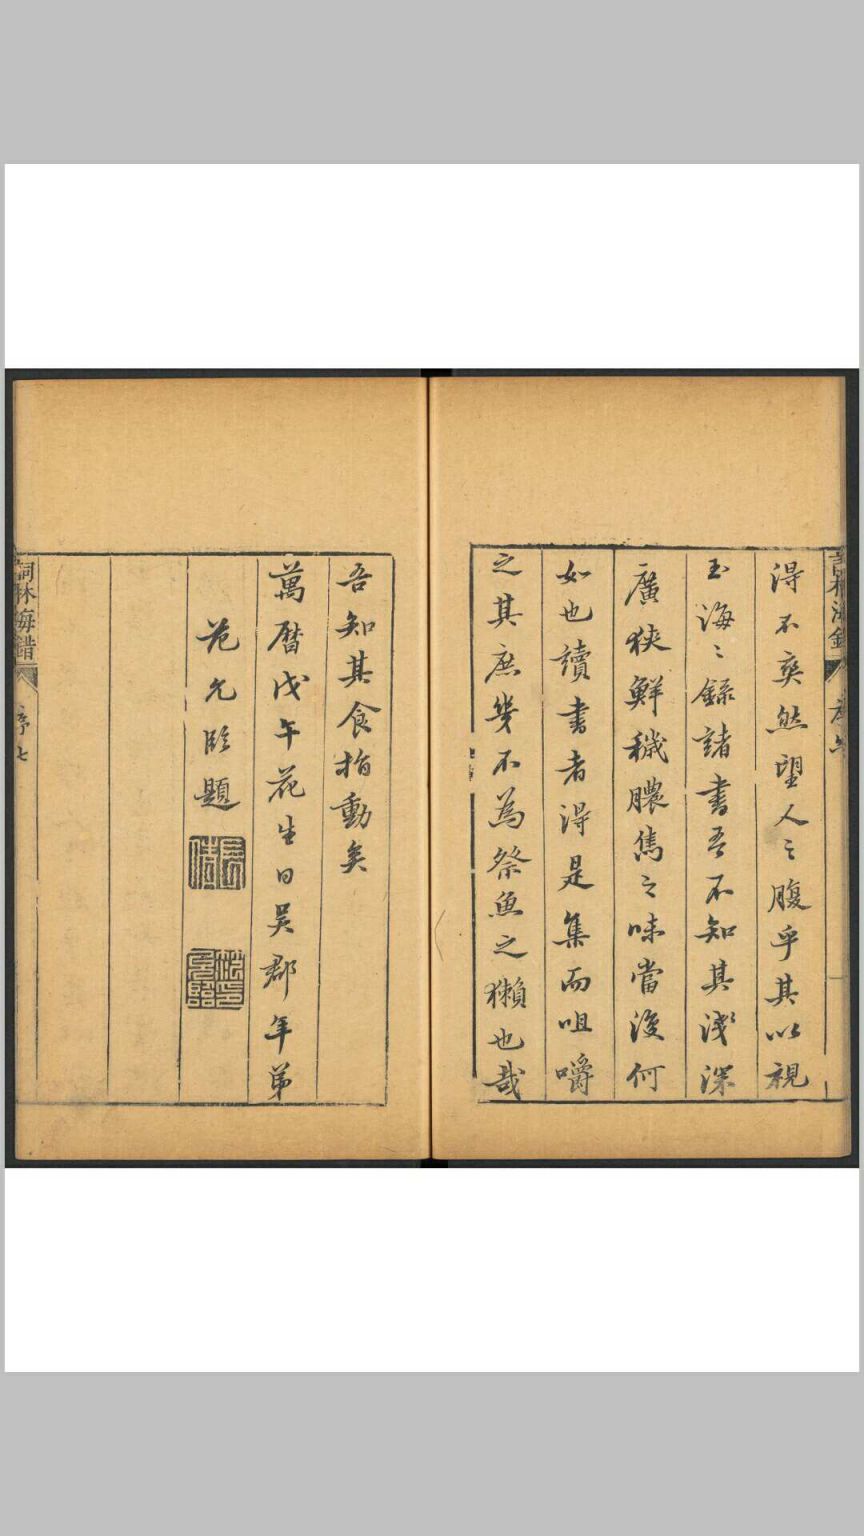 得不爽然望人之腹乎其以視
玉海〻錄諸書吾不知其淺深
廣狹鮮穠膿雋之味當復何
如也讀書者得是集而咀嚼
之其庶幾不為祭魚之獺也哉
吾知其食指動矣
萬曆戊午花生日吳郡年弟
范允臨題
詞林海錯
序七